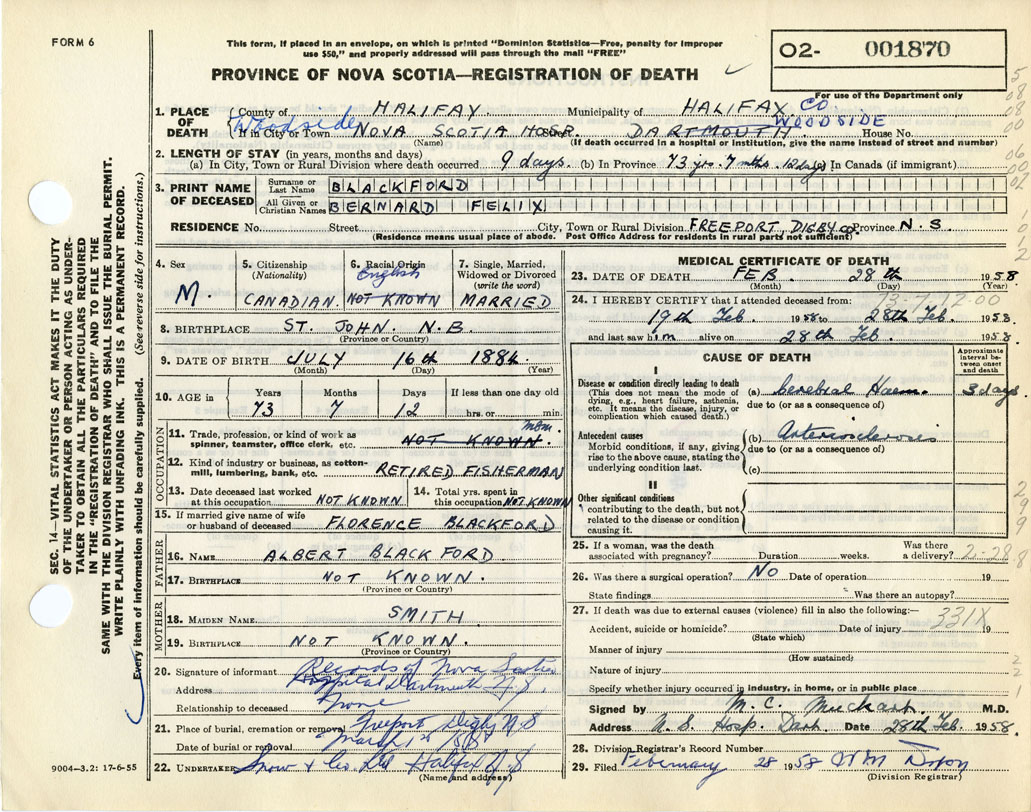 FORM 6
This form, if placed in an envelope, on which is printed "Dominion Statistics—Free, penalty for improper
use $50," and properly addressed will pass through the mail "FREE"
PROVINCE OF NOVA SCOTIA—REGISTRATION OF DEATH
O2- 001870
For use of the Department only
SEC. 14—VITAL STATISTICS ACT MAKES IT THE DUTY
OF THE UNDERTAKER OR PERSON ACTING AS UNDER-
TAKER TO OBTAIN ALL THE PARTICULARS REQUIRED
IN THE "REGISTRATION OF DEATH" AND TO FILE THE
SAME WITH THE DIVISION REGISTRAR WHO SHALL ISSUE THE BURIAL PERMIT.
WRITE PLAINLY WITH UNFADING INK. THIS IS A PERMANENT RECORD.
Every item of information should be carefully supplied. (See reverse side for instructions.)
1. PLACE OF DEATH County of HALIFAX Municipality of HALIFAX CO
Woodside If in City or Town NOVA SCOTIA HOSP. Street DARTMOUTH WOODSIDE House No.
(Name) (If death occurred in a hospital or institution, give the name instead of street and number)
2. LENGTH OF STAY (in years, months and days)
(a) In City, Town or Rural Division where death occurred 9 days. (b) In Province 73 yrs. 7 mths. 12 days (c) In Canada (if immigrant)
3. PRINT NAME OF DECEASED Surname or Last Name BLACKFORD
All Given or Christian Names BERNARD FELIX
RESIDENCE No. Street City, Town or Rural Division FREEPORT DIGBY CO. Province N.S.
(Residence means usual place of abode. Post Office Address for residents in rural parts not sufficient)
4. Sex M.
5. Citizenship (Nationality) CANADIAN.
6. Racial Origin English NOT KNOWN
7. Single, Married, Widowed or Divorced (write the word) MARRIED
8. BIRTHPLACE ST. JOHN. N.B.
(Province or Country)
9. DATE OF BIRTH JULY 16th 1884
(Month) (Day) (Year)
10. AGE in Years 73 Months 7 Days 12 If less than one day old hrs. or min.
OCCUPATION
11. Trade, profession, or kind of work as spinner, teamster, office clerk, etc. NOT KNOWN.
12. Kind of industry or business, as cotton-mill, lumbering, bank, etc. RETIRED FISHERMAN
13. Date deceased last worked at this occupation NOT KNOWN
14. Total yrs. spent in this occupation NOT KNOWN
15. If married give name of wife or husband of deceased FLORENCE BLACKFORD
FATHER
16. NAME ALBERT BLACKFORD
17. BIRTHPLACE NOT KNOWN.
(Province or Country)
MOTHER
18. MAIDEN NAME SMITH
19. BIRTHPLACE NOT KNOWN.
(Province or Country)
20. Signature of informant Records of Nova Scotia
Address Hospital Dartmouth N.S.
Relationship to deceased None
21. Place of burial, cremation or removal Freeport Digby N.S
Date of burial or removal March 1st
22. UNDERTAKER Snow & Co. Ltd Halifax N.S
(Name and address)
9004—3.2: 17-6-55
MEDICAL CERTIFICATE OF DEATH
23. DATE OF DEATH FEB 28th 1958
(Month) (Day) (Year)
24. I HEREBY CERTIFY that I attended deceased from: 13-7-12-00
19th Feb. 1958 to 28th Feb. 1958
and last saw him alive on 28th Feb. 1958
CAUSE OF DEATH
Approximate interval between onset and death
I
Disease or condition directly leading to death (a) Cerebral Haem. 3 days
(This does not mean the mode of dying, e.g., heart failure, asthenia, etc. It means the disease, injury, or complication which caused death.)
due to (or as a consequence of)
Antecedent causes (b) Arteriosclerosis
Morbid conditions, if any, giving rise to the above cause, stating the underlying condition last.
due to (or as a consequence of)
(c)
II
Other significant conditions
contributing to the death, but not related to the disease or condition causing it.
25. If a woman, was the death associated with pregnancy? Duration weeks. Was there a delivery? 2-28-8
26. Was there a surgical operation? NO Date of operation 19
State findings Was there an autopsy?
27. If death was due to external causes (violence) fill in also the following:— 331X
Accident, suicide or homicide? Date of injury 19
(State which)
Manner of injury
(How sustained)
Nature of injury
Specify whether injury occurred in industry, in home, or in public place
Signed by M. C. M.D.
Address N.S. Hosp. Dart. Date 28th Feb. 1958
28. Division Registrar's Record Number
29. Filed February 28 1958 WM
(Division Registrar)